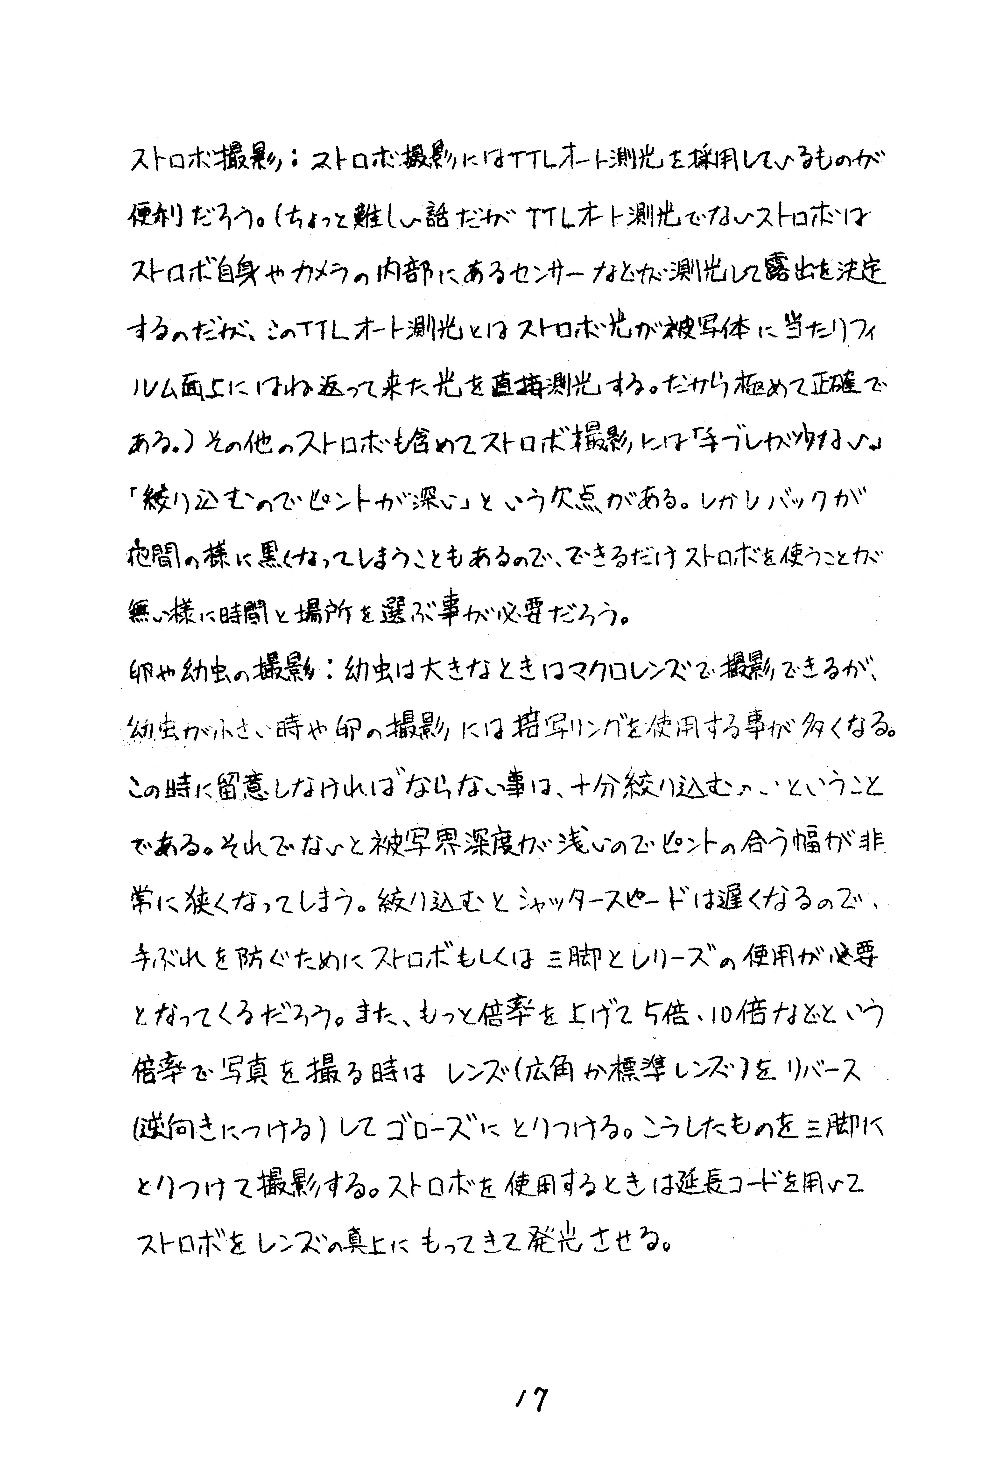 ストロボ撮影：ストロボ撮影にはTTLオート測光を採用しているものが
便利だろう。（ちょっと難しい話だがTTLオート測光でないストロボは
ストロボ自身やカメラの内部にあるセンサーなどが測光して露出を決定
するのだが、このTTLオート測光とはストロボ光が被写体に当たりフィ
ルム面上にはね返って来た光を直接測光する。だから極めて正確で
ある。）その他のストロボも含めてストロボ撮影には「手ブレが少ない。」
「絞り込むのでピントが深い」という欠点がある。しかしバックが
夜間の様に黒くなってしまうこともあるので、できるだけストロボを使うことが
無い様に時間と場所を選ぶ事が必要だろう。
卵や幼虫の撮影：幼虫は大きなときはマクロレンズで撮影できるが、
幼虫が小さい時や卵の撮影には接写リングを使用する事が多くなる。
この時に留意しなければならない事は、十分絞り込むということ
である。それでないと被写界深度が浅いのでピントの合う幅が非
常に狭くなってしまう。絞り込むとシャッタースピードは遅くなるので、
手ぶれを防ぐためにストロボもしくは三脚とレリーズの使用が必要
となってくるだろう。また、もっと倍率を上げて5倍、10倍などという
倍率で写真を撮る時はレンズ（広角か標準レンズ）をリバース
（逆向きにつける）してベローズにとりつける。こうしたものを三脚に
とりつけて撮影する。ストロボを使用するときは延長コードを用いて
ストロボをレンズの真上にもってきて発光させる。
17